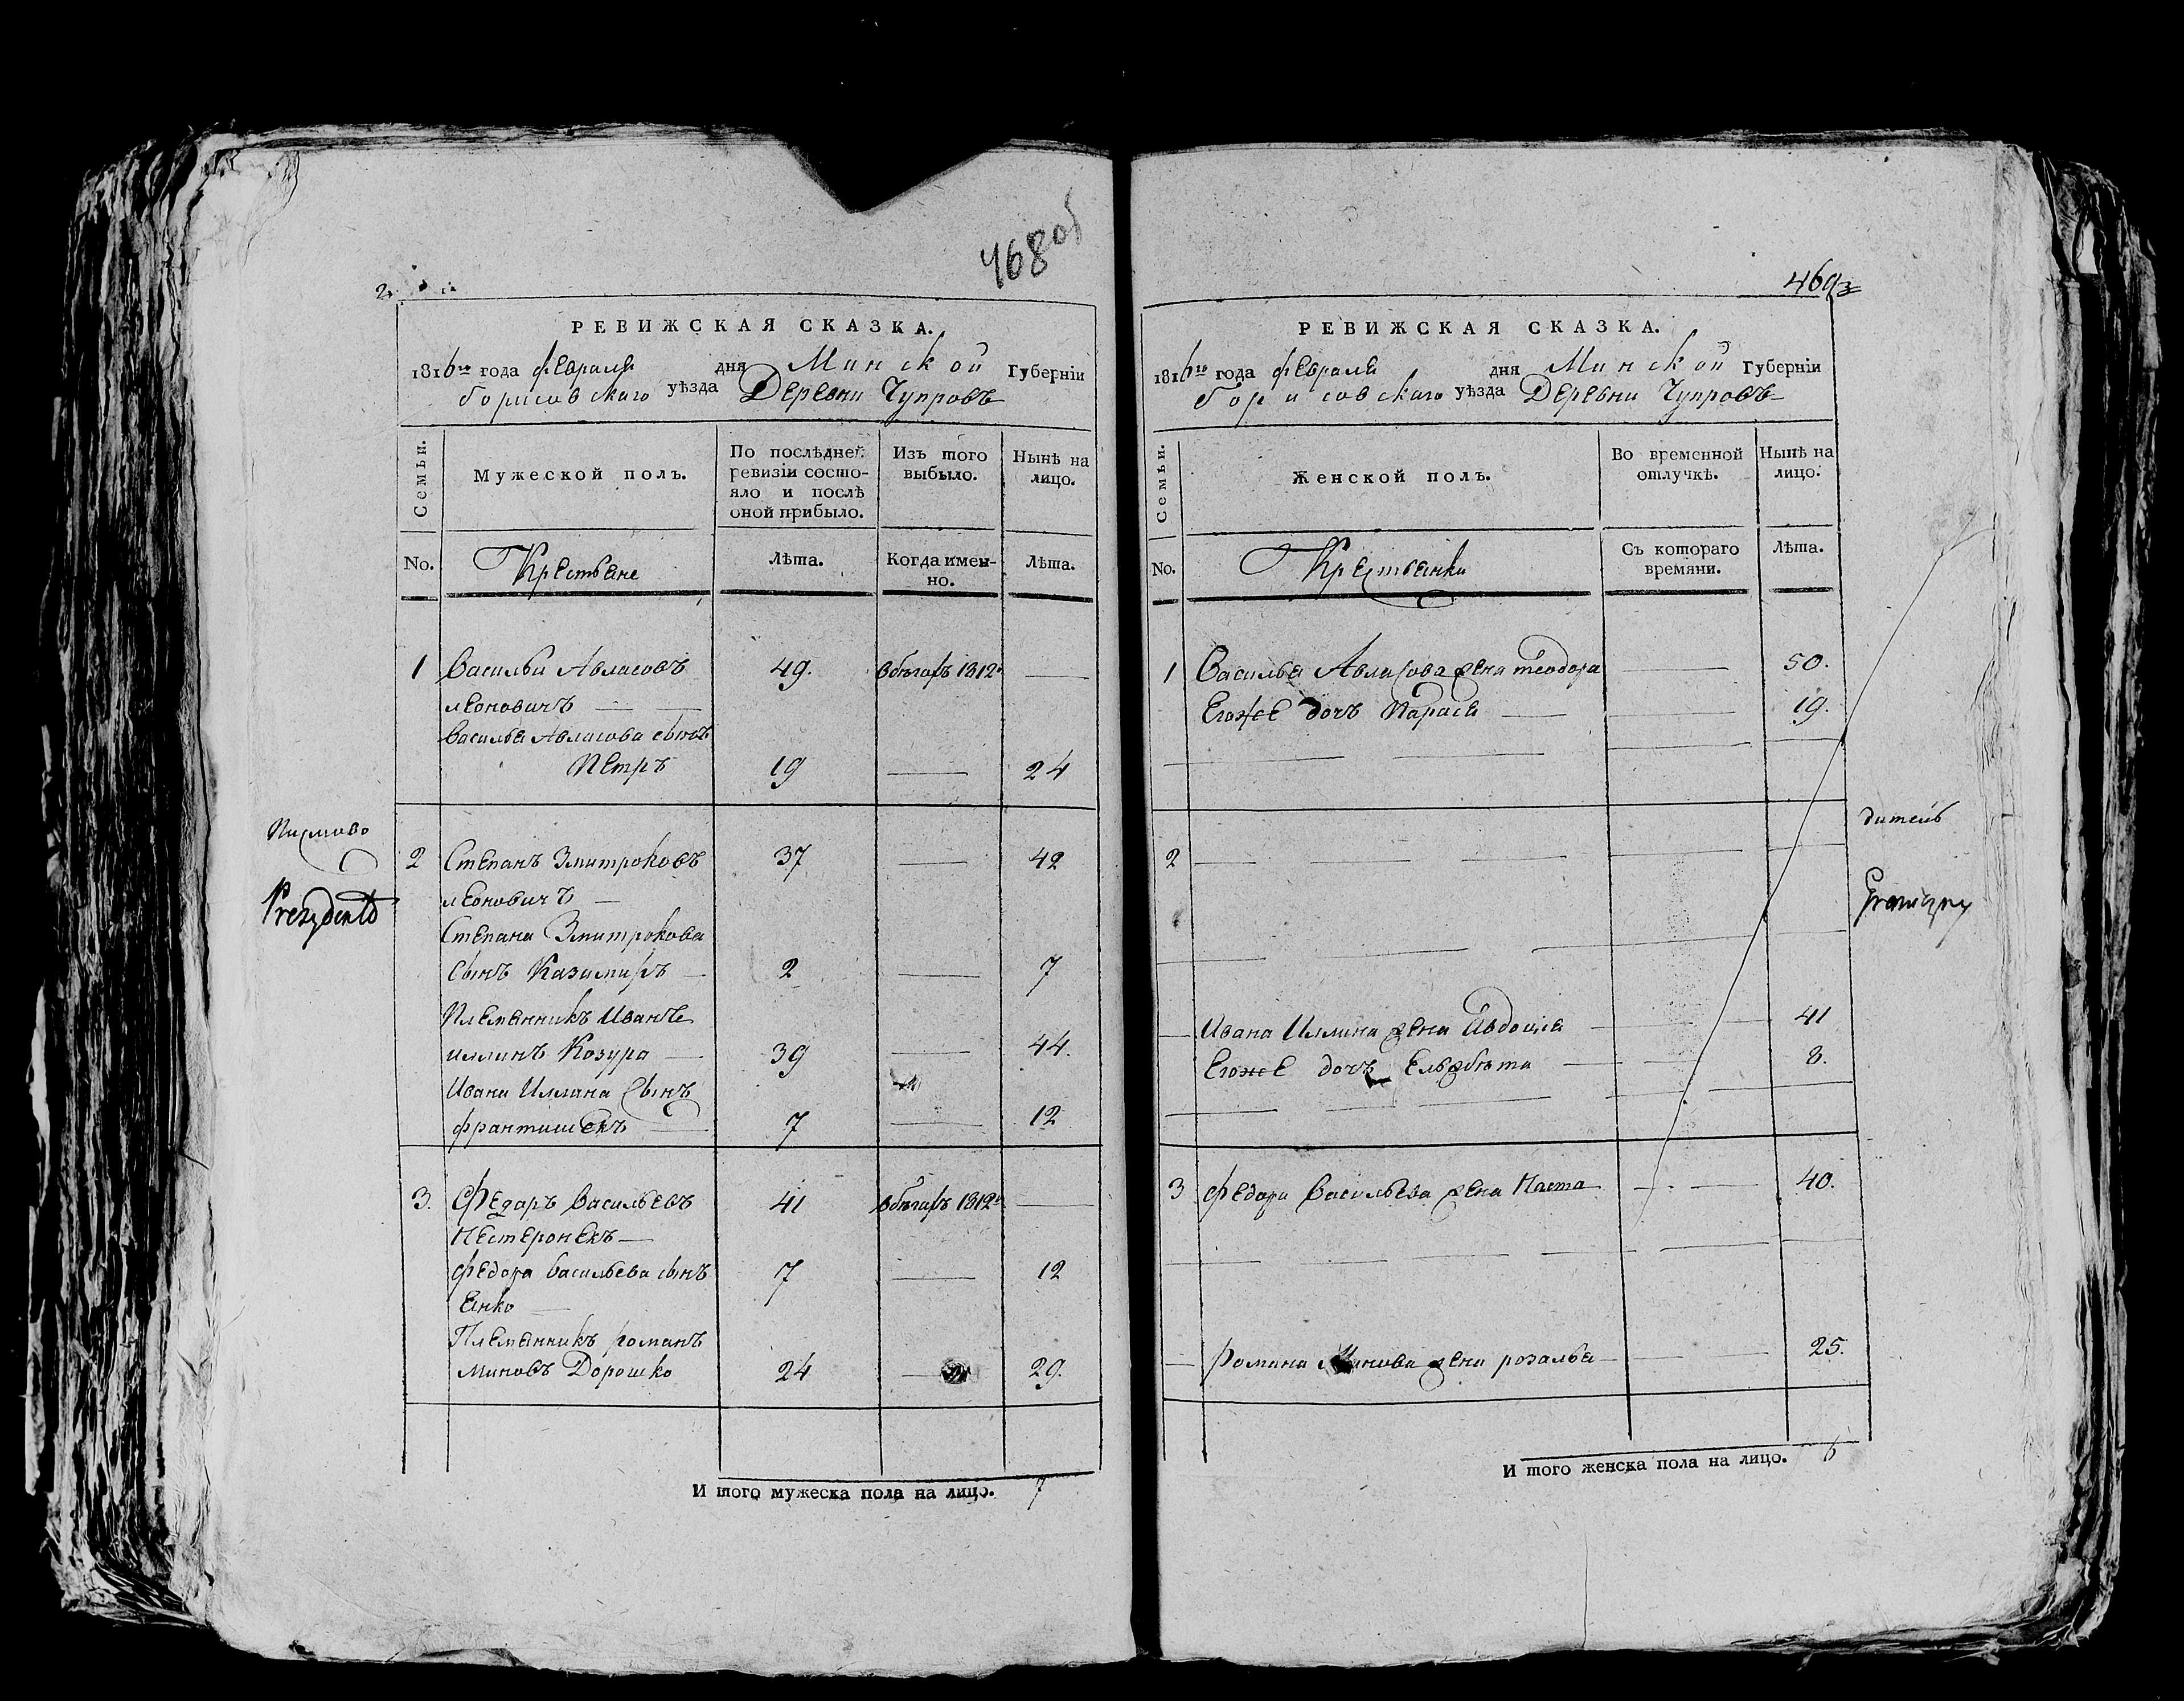 468 об
2.
РЕВИЖСКАЯ СКАЗКА.
1816го года февраля дня Минской Губерніи
борисовскаго уѣзда Деревни Чупровъ
Семьи.
Мужеской полъ.
По послѣдней ревизіи состояло и послѣ оной прибыло.
Изъ того выбыло.
Нынѣ на лицо.
No.
Крестьяне
Лѣта.
Когда именно.
Лѣта.
1 Васильи Авласовъ 49. вбѣгахъ 1812го —
леоновичъ —
Василья Авласова сынъ
Петръ 19 — 24
Писмово
2 Степанъ Змитроковъ 37 — 42
леоновичъ —
Prezydent
Степана Змитрокова
сынъ Казимиръ — 2 — 7
Племянникъ Иванъ
иллинъ Козура — 39 — 44.
Ивана Иллина сынъ
франтишекъ 7 — 12
3. Федаръ Васильевъ 41 вбѣгахъ 1812го —
Нестеронекъ —
федора васильева сынъ 7 — 12
Янко —
Племянникъ романъ
миновъ Дорошко 24 — 29.
И того мужеска пола на лицо. 7
469
3
РЕВИЖСКАЯ СКАЗКА.
1816го года февраля дня Минской Губерніи
борисовскаго уѣзда Деревни Чупровъ
Семьи.
Женской полъ.
Во временной отлучкѣ.
Нынѣ на лицо.
No.
Крестьянки
Съ котораго времяни.
Лѣта.
1 Василья Авласова жена теодора — 50.
Егоже дочъ Парася — 19.
дитель
2 —
Graniczny
— Ивана Иллина жена Авдоция — 41
Егоже дочъ Ельжбѣта — 8.
3 федора Васильева жена Наста — 40.
— романа Минова жена розалья — 25.
И того женска пола на лицо. 6